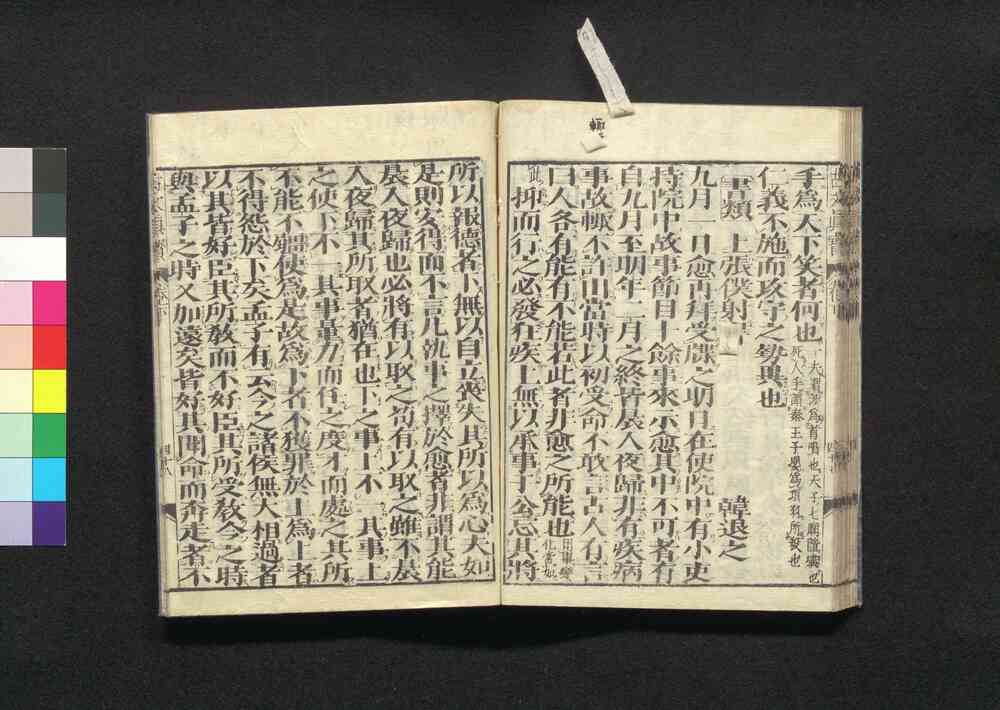 手爲天下笑者何也
仁義不施而攻守之勢異也
書類 上張僕射書
韓退之
九月一日愈再拜受牒之明日在使院中有小吏
持院中故事節目十餘事來示愈其中不可者有
自九月至明年二月之終皆晨入夜歸非有疾病
事故輒不許出當時以初受命不敢言古人有言
曰人各有能有不能若此者非愈之所能也
抑而行之必發狂疾上無以承事于公忘其將
所以報德者下無以自立喪失其所以爲心夫如
是則安得而不言凡執事之擇於愈者非謂其能
晨入夜歸也必將有以取之苟有以取之雖不晨
入夜歸其所取者猶在也下之事上不一其事上
之使下不一其事量力而任之度才而處之其所
不能不彊使爲是故爲下者不獲罪於上爲上者
不得怨於下矣孟子有云今之諸侯無大相過者
以其皆好臣其所敎而不好臣其所受敎今之時
與孟子之時又加遠矣皆好其聞命而奔走者不